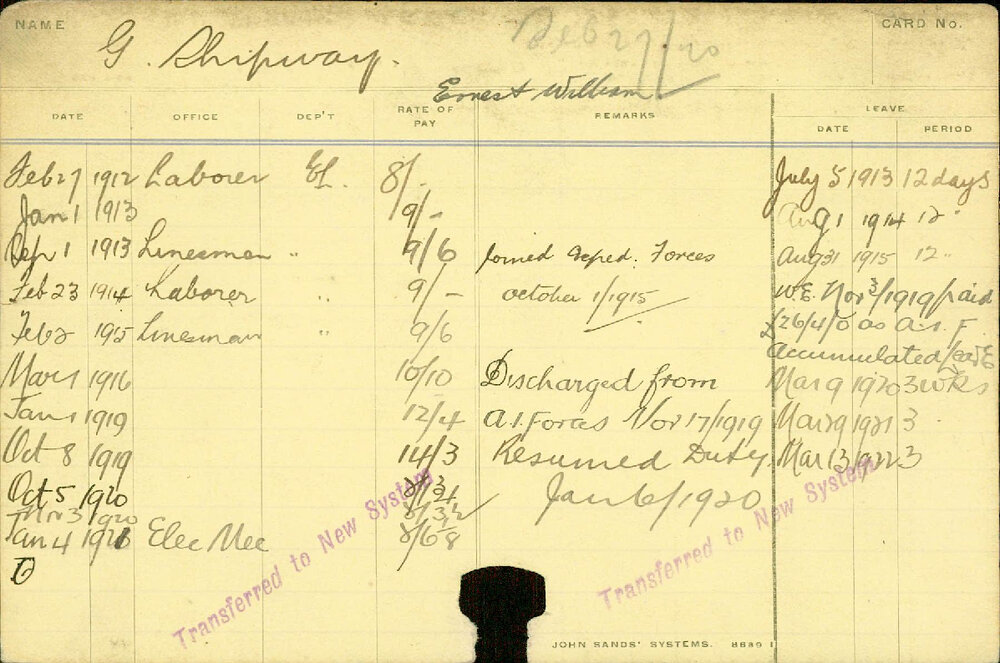 NAME
G. Shipway.
Feb 27/20
CARD No.
Ernest William
DATE OFFICE DEP'T RATE OF PAY REMARKS LEAVE
DATE PERIOD
Feb 27 1912 Laborer EL. 8/- July 5 1913 12 days
Jan 1 1913 9/- Aug 1 1914 12 "
Sep 1 1913 Linesman " 9/6 Joined Exped. Forces Aug 31 1915 12 "
Feb 23 1914 Laborer " 9/- October 1/1915 W.E. Nov 3/1919 paid
Feb 2 1915 Linesman " 9/6 £26/4/0 as A.I.F.
Accumulated
Mar 1 1916 10/10 Discharged from Mar 9 1920 3 wks
Jan 1 1919 12/4 A.I. Forces Nov 17/1919 Mar 29 1921 3
Oct 8 1919 14/3 Resumed Duty. Mar 13/1922 3
Oct 5 1920 Jan 6/1920
1920
Jan 4 1921 Elec Mec
Transferred to New System
Transferred to New System
JOHN SANDS' SYSTEMS. 8689